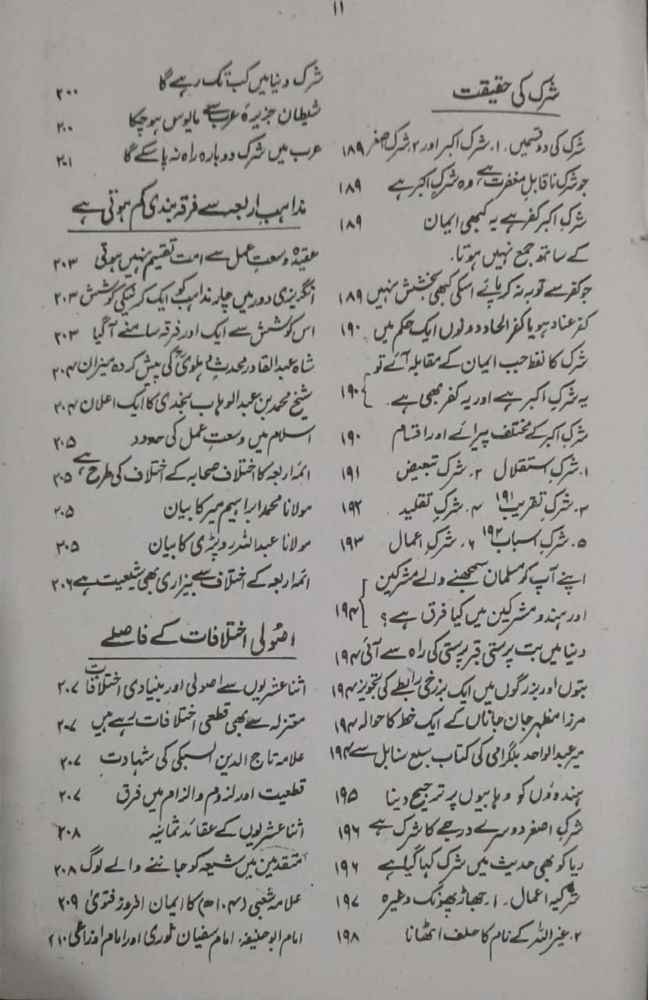 ۱۱
شرک کی حقیقت
شرک کی دو قسمیں۔ ۱۔ شرک اکبر اور ۲۔ شرک اصغر ۱۸۹
جو شرک ناقابل مغفرت ہے وہ شرک اکبر ہے ۱۸۹
شرک اکبر کفر ہے یہ کبھی ایمان ۱۸۹
کے ساتھ جمع نہیں ہوتا۔
جو کفر سے توبہ نہ کر پائے اسکی کبھی بخشش نہیں ۱۸۹
کفر عناد ہو یا کفر الحاد دونوں ایک حکم میں ۱۹۰
شرک کا لفظ جب ایمان کے مقابلہ آئے تو
یہ شرک اکبر ہے اور یہ کفر بھی ہے۔ ۱۹۰
شرک اکبر کے مختلف پیرائے اور اقسام ۱۹۰
۱۔ شرک استقلال ۲۔ شرک تبعیض ۱۹۱
۳۔ شرک تقریب ۱۹۱ ۴۔ شرک تقلید ۱۹۲
۵۔ شرک اسباب ۱۹۲ ۶۔ شرک اعمال ۱۹۳
اپنے آپ کو مسلمان سمجھنے والے مشرکین
اور ہندو مشرکین میں کیا فرق ہے؟ ۱۹۴
دنیا میں بت پرستی قبر پرستی کی راہ سے آئی ۱۹۴
بتوں اور بزرگوں میں ایک برزخی رابطے کی تجویز ۱۹۴
مرزا مظہر جان جاناں کے ایک خط کا حوالہ ۱۹۴
میر عبدالواحد بلگرامی کی کتاب سبع سنابل سے ۱۹۴
ہندوؤں کو وہابیوں پر ترجیح دینا ۱۹۵
شرک اصغر دوسرے درجے کا شرک ہے ۱۹۶
ریا کو بھی حدیث میں شرک کہا گیا ہے ۱۹۶
شرکیہ اعمال۔ ۱۔ جھاڑ پھونک وغیرہ ۱۹۷
۲۔ غیر اللہ کے نام کا حلف اٹھانا ۱۹۸
شرک دنیا میں کب تک رہے گا ۲۰۰
شیطان جزیرۂ عرب سے مایوس ہو چکا ۲۰۰
عرب میں شرک دوبارہ راہ نہ پا سکے گا ۲۰۱
مذاہب اربعہ سے فرقہ بندی کم ہوتی ہے
عقیدہ وسعت عمل سے امت تقسیم نہیں ہوتی ۲۰۳
انگریزی دور میں چار مذاہب کو ایک کرنیکی کوشش ۲۰۳
اس کوشش سے ایک اور فرقہ سامنے آ گیا ۲۰۳
شاہ عبدالقادر محدث دہلویؒ کی پیش کردہ میزان ۲۰۴
شیخ محمد بن عبدالوہاب نجدی کا ایک اعلان ۲۰۴
اسلام میں وسعت عمل کی حدود ۲۰۵
ائمہ اربعہ کا اختلاف صحابہ کے اختلاف کی طرح ہے ۲۰۵
مولانا محمد ابراہیم میر کا بیان ۲۰۵
مولانا عبداللہ روپڑی کا بیان ۲۰۵
ائمہ اربعہ کے اختلاف سے بیزاری بھی شیعیت ہے ۲۰۶
اصولی اختلافات کے فاصلے
اثنا عشریوں سے اصولی اور بنیادی اختلافات ۲۰۷
معتزلہ سے بھی قطعی اختلافات رہے ہیں ۲۰۷
علامہ تاج الدین السبکی کی شہادت ۲۰۷
قطعیت اور لزوم والزام میں فرق ۲۰۷
اثنا عشریوں کے عقائد ثمانیہ ۲۰۸
متقدمین میں شیعہ کو جاننے والے لوگ ۲۰۸
علامہ شعبی (۱۰۴ھ) کا ایمان افروز فتویٰ ۲۰۹
امام ابوحنیفہ، امام سفیان ثوری اور امام اوزاعی ۲۱۰